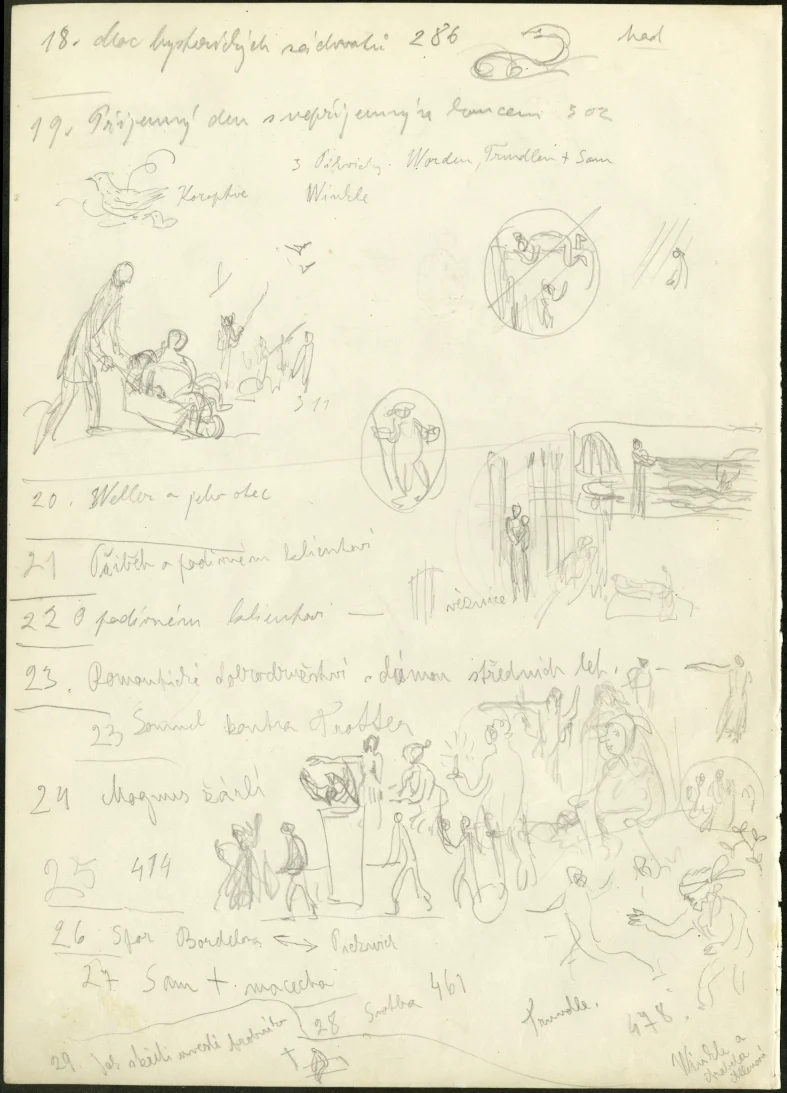 18. Moc hysterických záchvatů 286
had
19. Příjemný den s nepříjemným koncem 302
3 Pikwick. Worden, Trundlem + Sam
Koroptve Winkle
311
20. Weller a jeho otec
21 Příběh o podivném klientovi
22 O podivném klientovi —
věznice
23. Romantické dobrodružství s dámou středních let.
23 Samuel kontra Trotter
24 Magnus žárlí
25 414
26 Spor Bardelová ↔ Pickwick
27 Sam + macecha
28 Svatba 461
Trundle.
478.
29. Jak skřeti unesli hrobníka
Winkle a
Arabela
Allenová